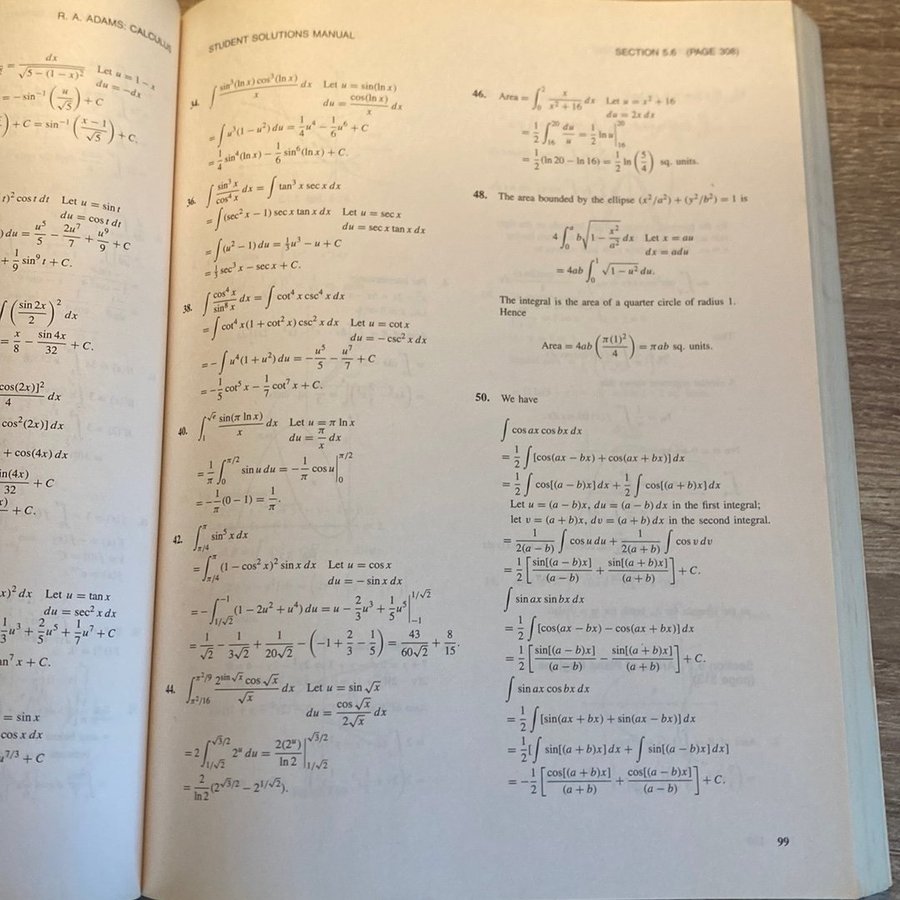 R. A. ADAMS: CALCULUS
= dx / √(5 − (1 − x)²) Let u = 1 − x
du = −dx
= − sin⁻¹ (u/√5) + C
) + C = sin⁻¹ ((x − 1)/√5) + C.
t)² cos t dt Let u = sin t
du = cos t dt
) du = u⁵/5 − 2u⁷/7 + u⁹/9 + C
+ 1/9 sin⁹ t + C.
∫ (sin 2x / 2)² dx
= x/8 − sin 4x/32 + C.
cos(2x)]²/4 dx
cos²(2x)] dx
+ cos(4x) dx
in(4x)/32 + C
+ C.
x)² dx Let u = tan x
du = sec² x dx
1/3 u³ + 2/5 u⁵ + 1/7 u⁷ + C
an⁷ x + C.
= sin x
cos x dx
7/3 + C
STUDENT SOLUTIONS MANUAL
SECTION 5.6 (PAGE 308)
34. ∫ sin³(ln x) cos³(ln x)/x dx Let u = sin(ln x)
du = cos(ln x)/x dx
= ∫ u³(1 − u²) du = 1/4 u⁴ − 1/6 u⁶ + C
= 1/4 sin⁴(ln x) − 1/6 sin⁶(ln x) + C.
36. ∫ sin³ x/cos⁴ x dx = ∫ tan³ x sec x dx
= ∫ (sec² x − 1) sec x tan x dx Let u = sec x
du = sec x tan x dx
= ∫ (u² − 1) du = 1/3 u³ − u + C
= 1/3 sec³ x − sec x + C.
38. ∫ cos⁴ x/sin⁸ x dx = ∫ cot⁴ x csc⁴ x dx
= ∫ cot⁴ x(1 + cot² x) csc² x dx Let u = cot x
du = − csc² x dx
= − ∫ u⁴(1 + u²) du = − u⁵/5 − u⁷/7 + C
= − 1/5 cot⁵ x − 1/7 cot⁷ x + C.
40. ∫₁^√e sin(π ln x)/x dx Let u = π ln x
du = π/x dx
= 1/π ∫₀^π/2 sin u du = − 1/π cos u |₀^π/2
= − 1/π (0 − 1) = 1/π.
42. ∫_π/4^π sin⁵ x dx
= ∫_π/4^π (1 − cos² x)² sin x dx Let u = cos x
du = − sin x dx
= − ∫_1/√2^−1 (1 − 2u² + u⁴) du = u − 2/3 u³ + 1/5 u⁵ |_−1^1/√2
= 1/√2 − 1/3√2 + 1/20√2 − (−1 + 2/3 − 1/5) = 43/60√2 + 8/15.
44. ∫_π²/16^π²/9 2^sin √x cos √x/√x dx Let u = sin √x
du = cos √x/2√x dx
= 2 ∫_1/√2^√3/2 2^u du = 2(2^u)/ln 2 |_1/√2^√3/2
= 2/ln 2 (2^√3/2 − 2^1/√2).
46. Area = ∫₀² x/(x² + 16) dx Let u = x² + 16
du = 2x dx
= 1/2 ∫₁₆²⁰ du/u = 1/2 ln u |₁₆²⁰
= 1/2 (ln 20 − ln 16) = 1/2 ln (5/4) sq. units.
48. The area bounded by the ellipse (x²/a²) + (y²/b²) = 1 is
4 ∫₀^a b√(1 − x²/a²) dx Let x = au
dx = adu
= 4ab ∫₀¹ √(1 − u²) du.
The integral is the area of a quarter circle of radius 1.
Hence
Area = 4ab (π(1)²/4) = πab sq. units.
50. We have
∫ cos ax cos bx dx
= 1/2 ∫ [cos(ax − bx) + cos(ax + bx)] dx
= 1/2 ∫ cos[(a − b)x] dx + 1/2 ∫ cos[(a + b)x] dx
Let u = (a − b)x, du = (a − b) dx in the first integral;
let v = (a + b)x, dv = (a + b) dx in the second integral.
= 1/2(a − b) ∫ cos u du + 1/2(a + b) ∫ cos v dv
= 1/2 [sin[(a − b)x]/(a − b) + sin[(a + b)x]/(a + b)] + C.
∫ sin ax sin bx dx
= 1/2 ∫ [cos(ax − bx) − cos(ax + bx)] dx
= 1/2 [sin[(a − b)x]/(a − b) − sin[(a + b)x]/(a + b)] + C.
∫ sin ax cos bx dx
= 1/2 ∫ [sin(ax + bx) + sin(ax − bx)] dx
= 1/2 [∫ sin[(a + b)x] dx + ∫ sin[(a − b)x] dx]
= − 1/2 [cos[(a + b)x]/(a + b) + cos[(a − b)x]/(a − b)] + C.
99